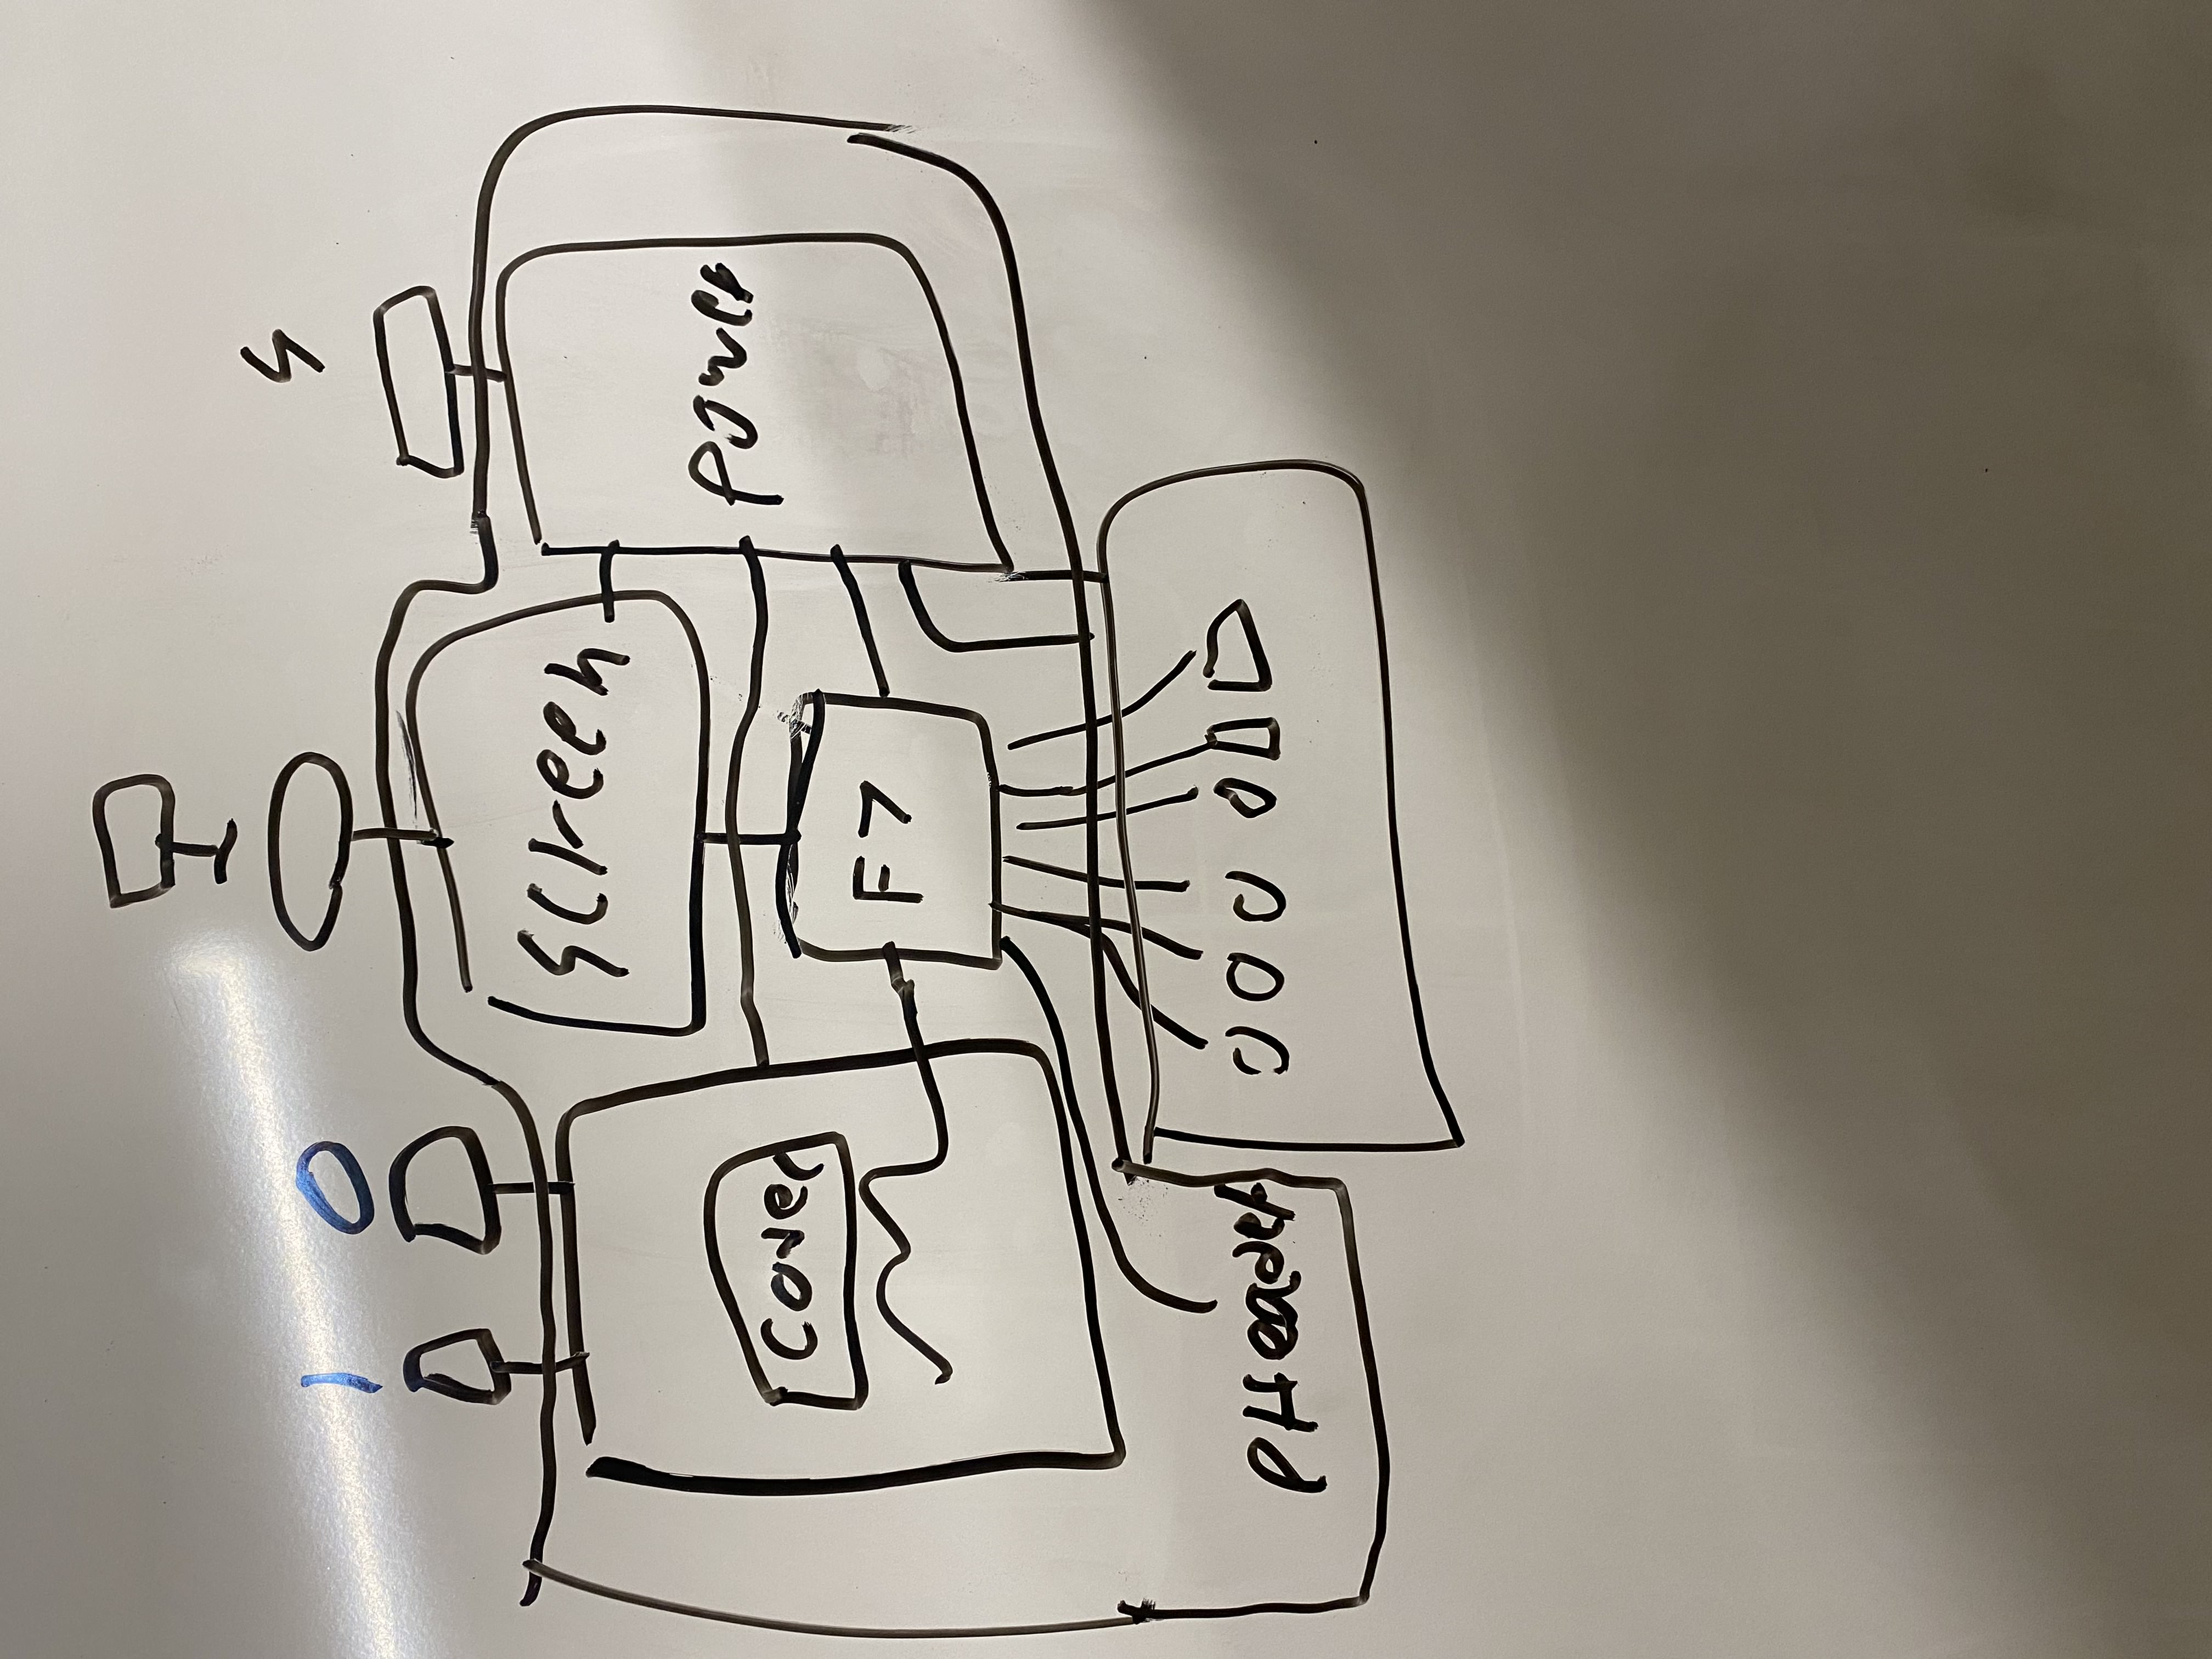 1 0
screen
power
cover
F7
PHeader